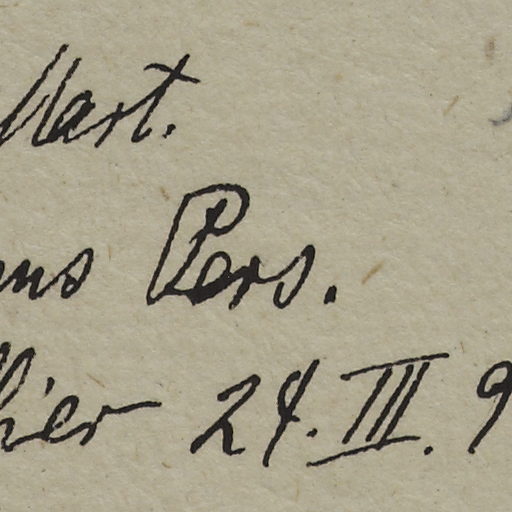 Mart.
ens Pers.
hier 24. III. 9